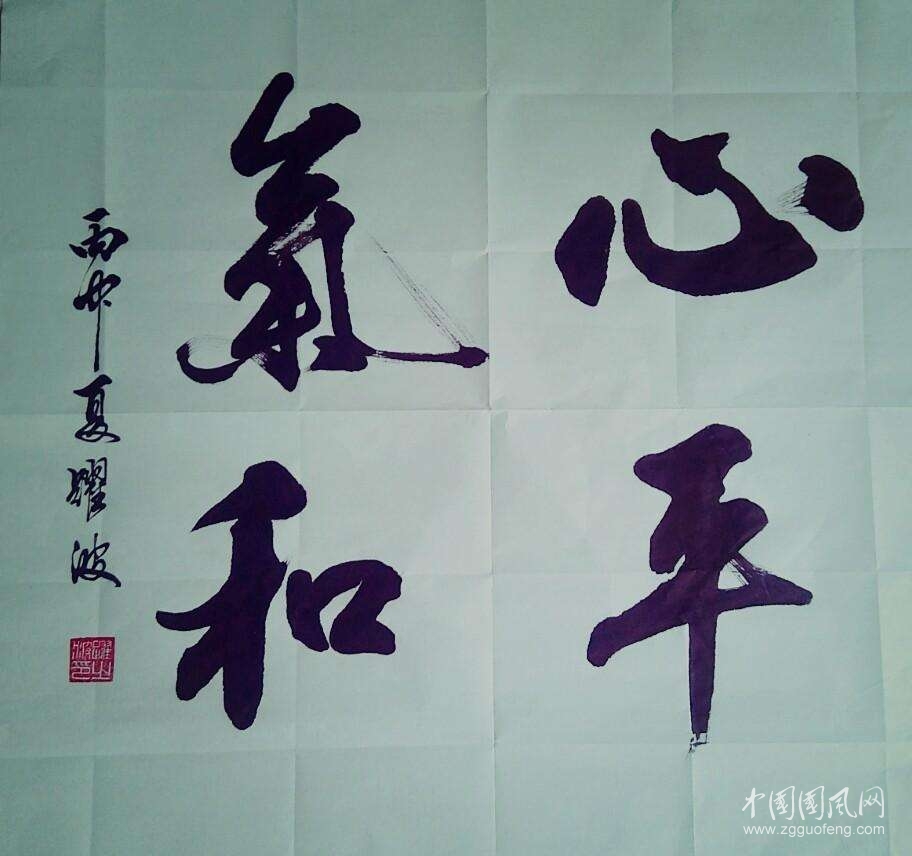 心平
氣和
丙申夏耀波
中国國风网
www.zgguofeng.com